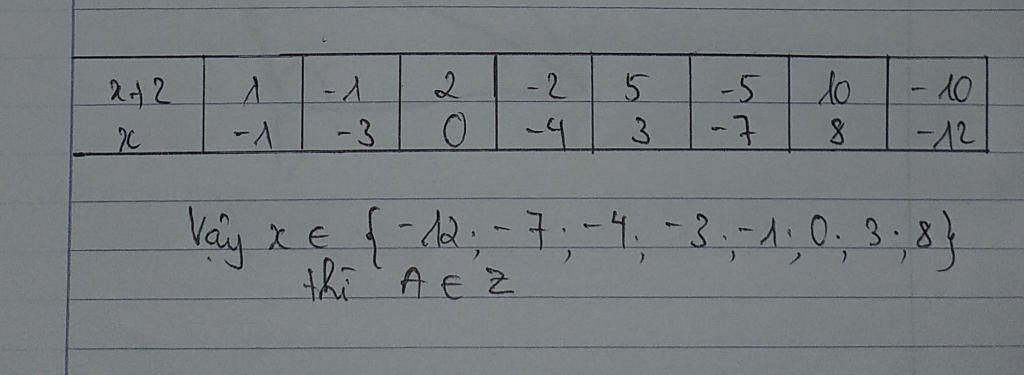 x+2 1 -1 2 -2 5 -5 10 -10
x -1 -3 0 -4 3 -7 8 -12
Vậy x ∈ {-12; -7; -4; -3; -1; 0; 3; 8}
thì A ∈ Z